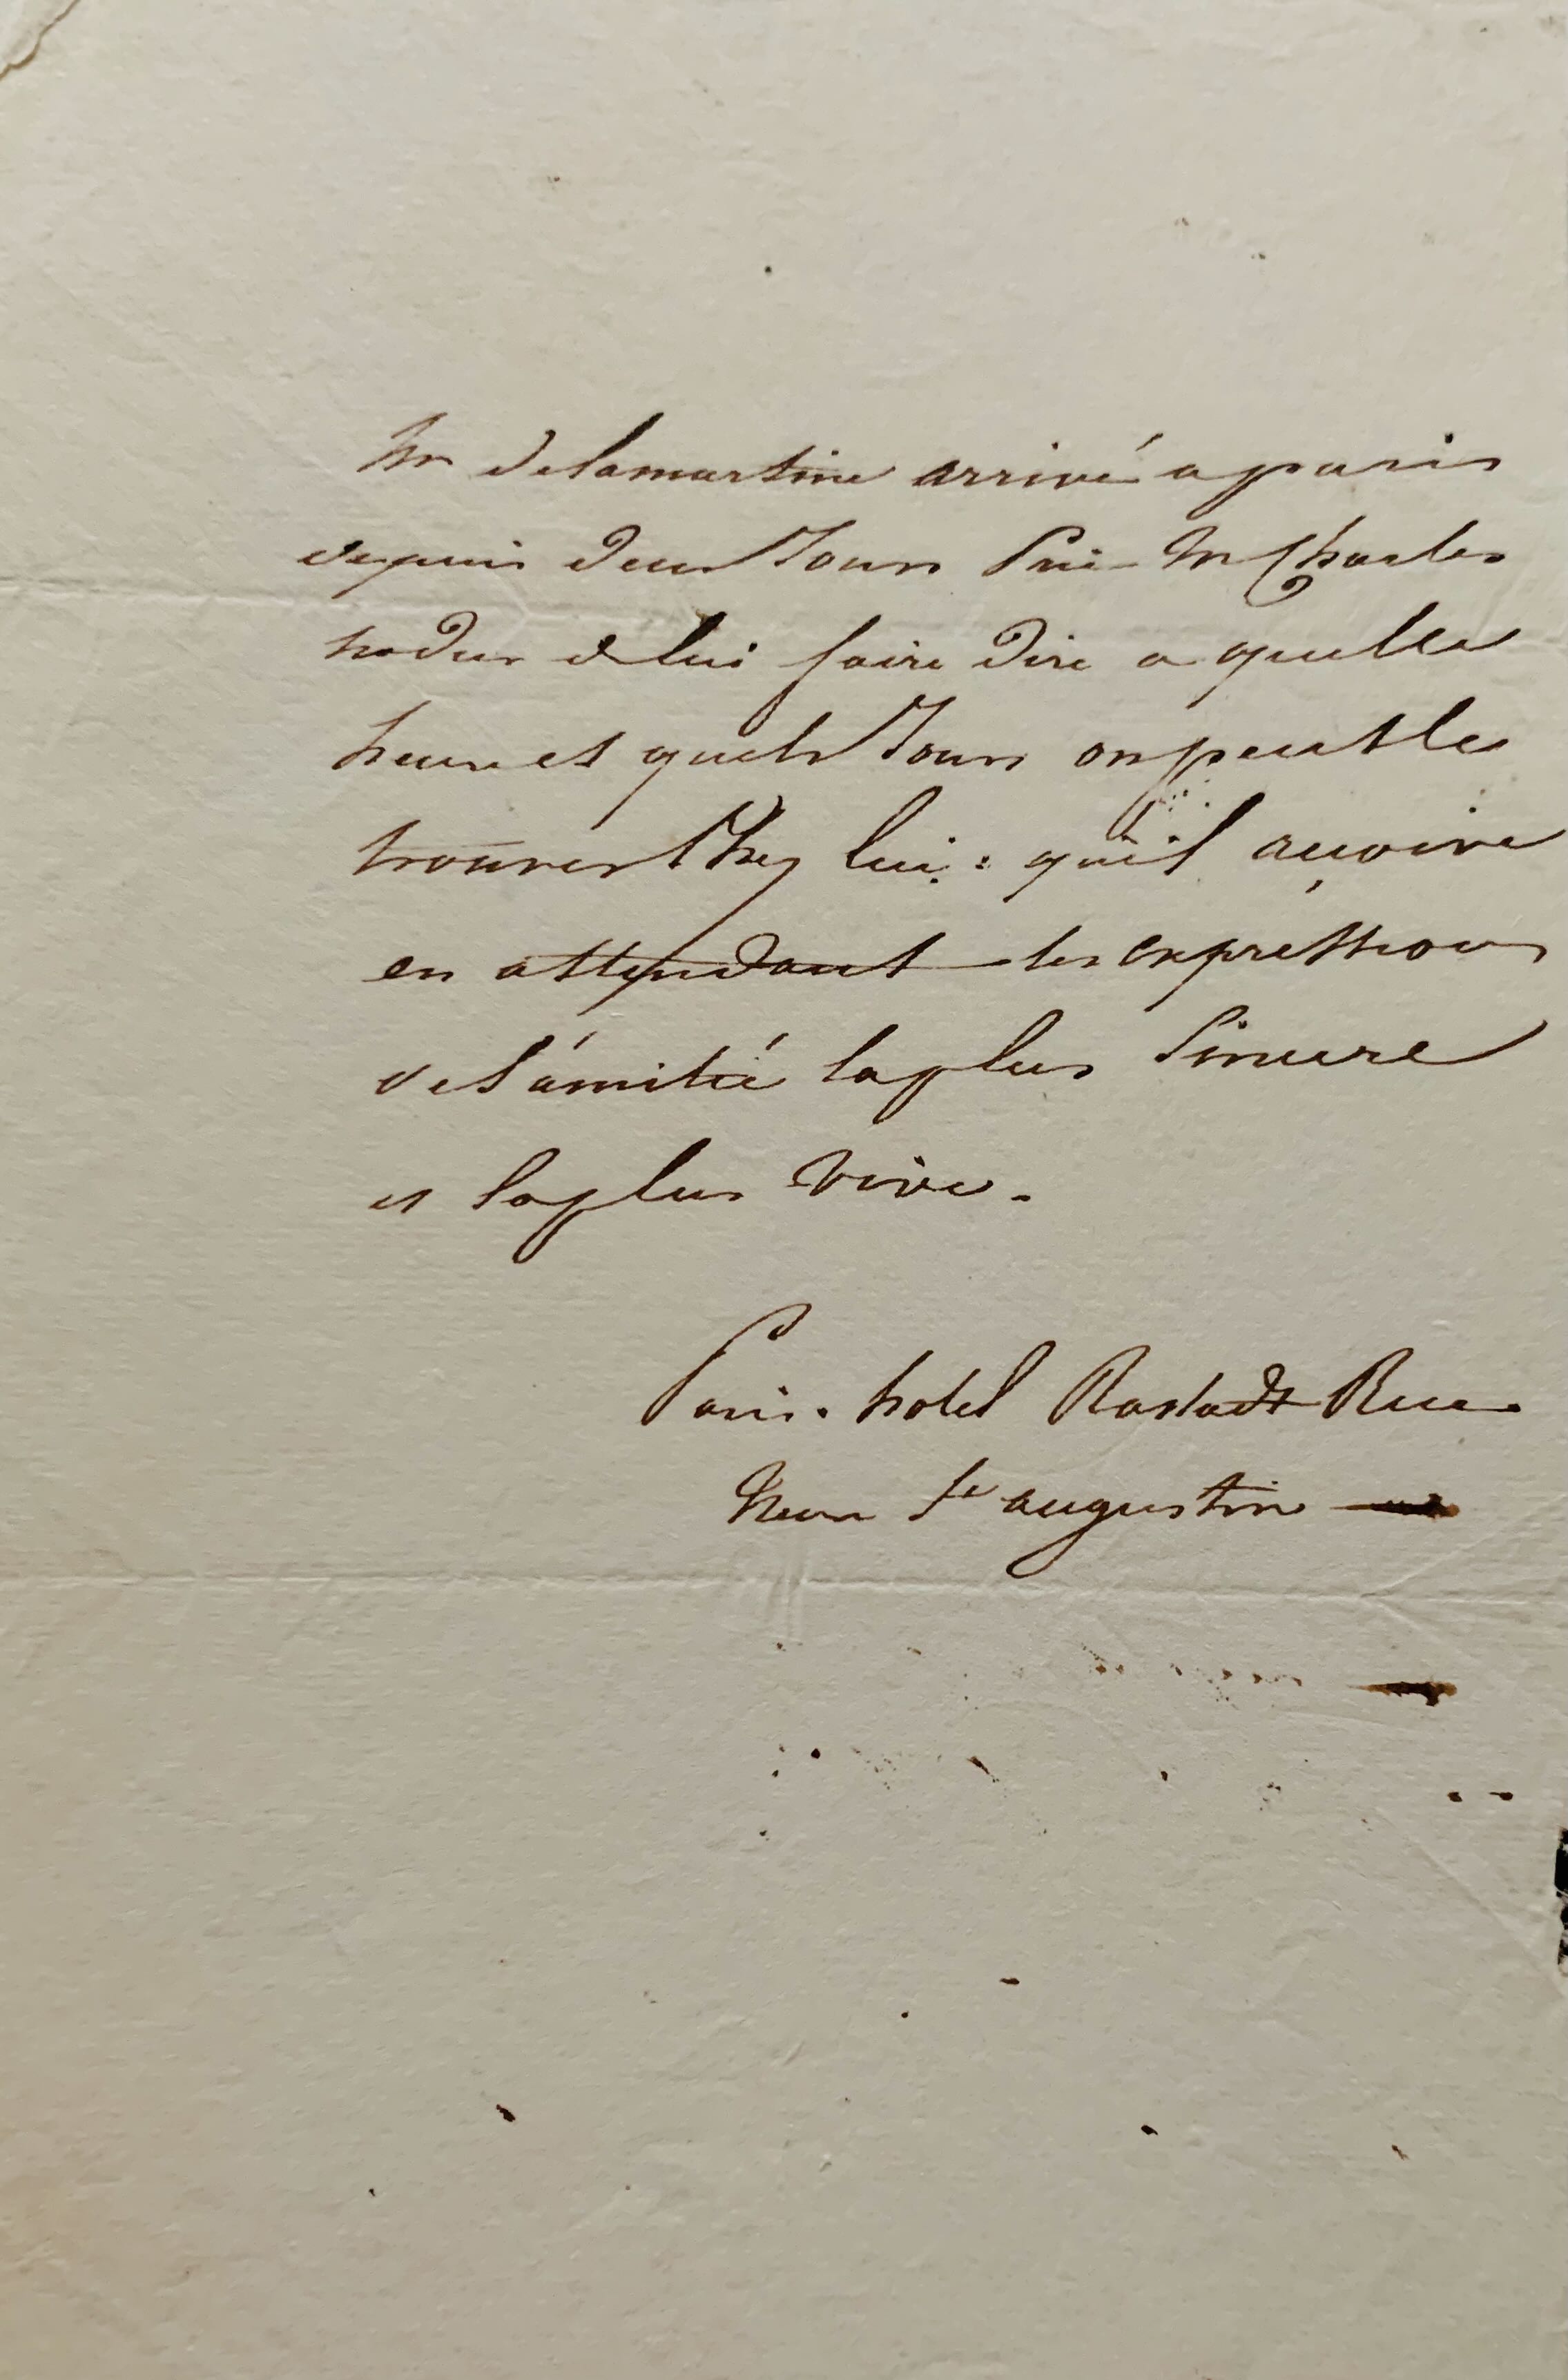 Mr delamartine arrivé a paris
depuis deux Jours Prie Mr Charles
nodier de lui faire dire a quelle
heure et quels Jours on peut le
trouver chez lui : qu'il reçoive
en attendant les expressions
de l'amitié la plus Sincere
et la plus Vive.
Paris. hotel Rastadt Rue
Neuve St augustin